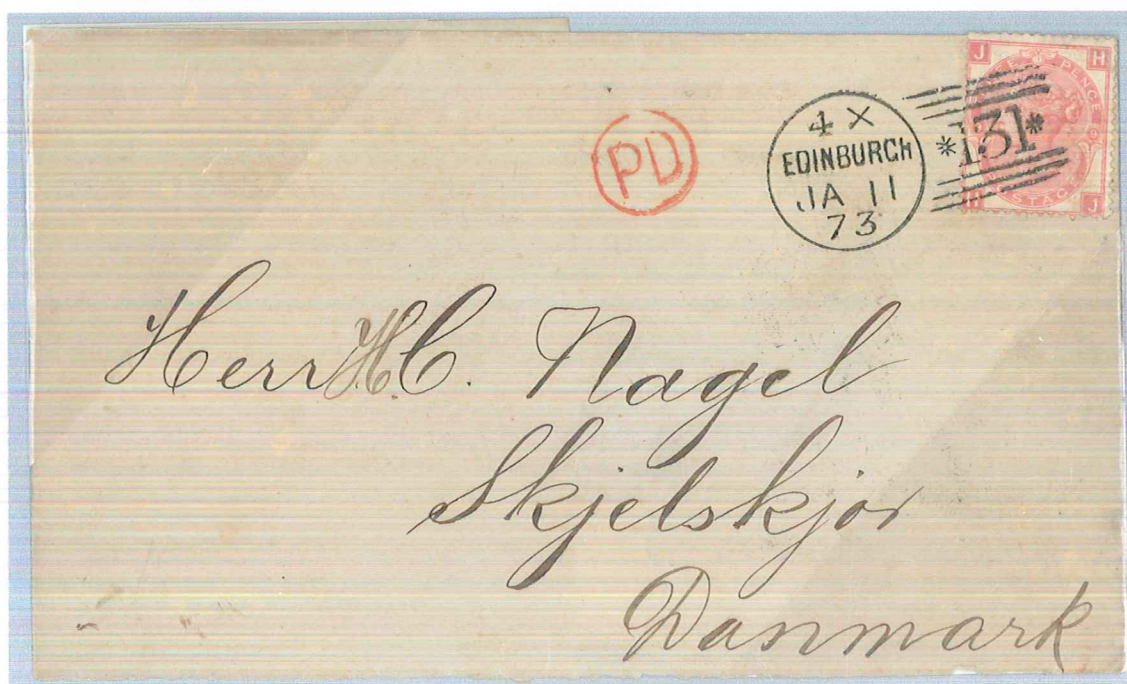 J H
THREE PENCE
9
POSTAGE
H J
*131*
4 X
EDINBURGH
JA 11
73
PD
Herr H.C. Nagel
Skjelskjör
Danmark